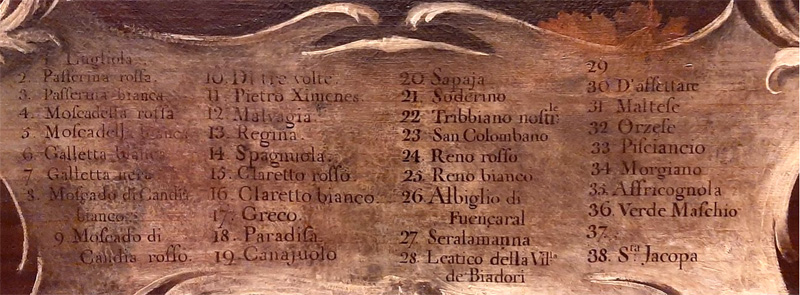 1 Lugliola
2. Paſſerina roſſa.
3. Paſſerina bianca
4. Moſcadella roſſa
5. Moſcadella bianca
6. Galletta bianca
7 Galletta nera
8. Moſcado di Candia
bianco.
9 Moſcado di
Candia roſſo.
10. Di tre volte.
11. Pietro Ximenes
12. Malvagia.
13. Regina.
14. Spagnuola.
15. Claretto roſſo
16. Claretto bianco.
17. Greco.
18. Paradiſa.
19. Canajuolo
20 Sapaja
21. Soderino
22 Tribbiano noſtr:le
23 San Colombano
24. Reno roſſo
25. Reno bianco
26 Albiglio di
Fuencaral
27. Seralamanna
28. Leatico della Villa
de Biadori
29
30 D'aſſettare
31 Malteſe
32 Orzeſe
33 Piſciancio
34 Morgiano
35. Affricognola
36. Verde Maſchio
37.
38. Sta Jacopa